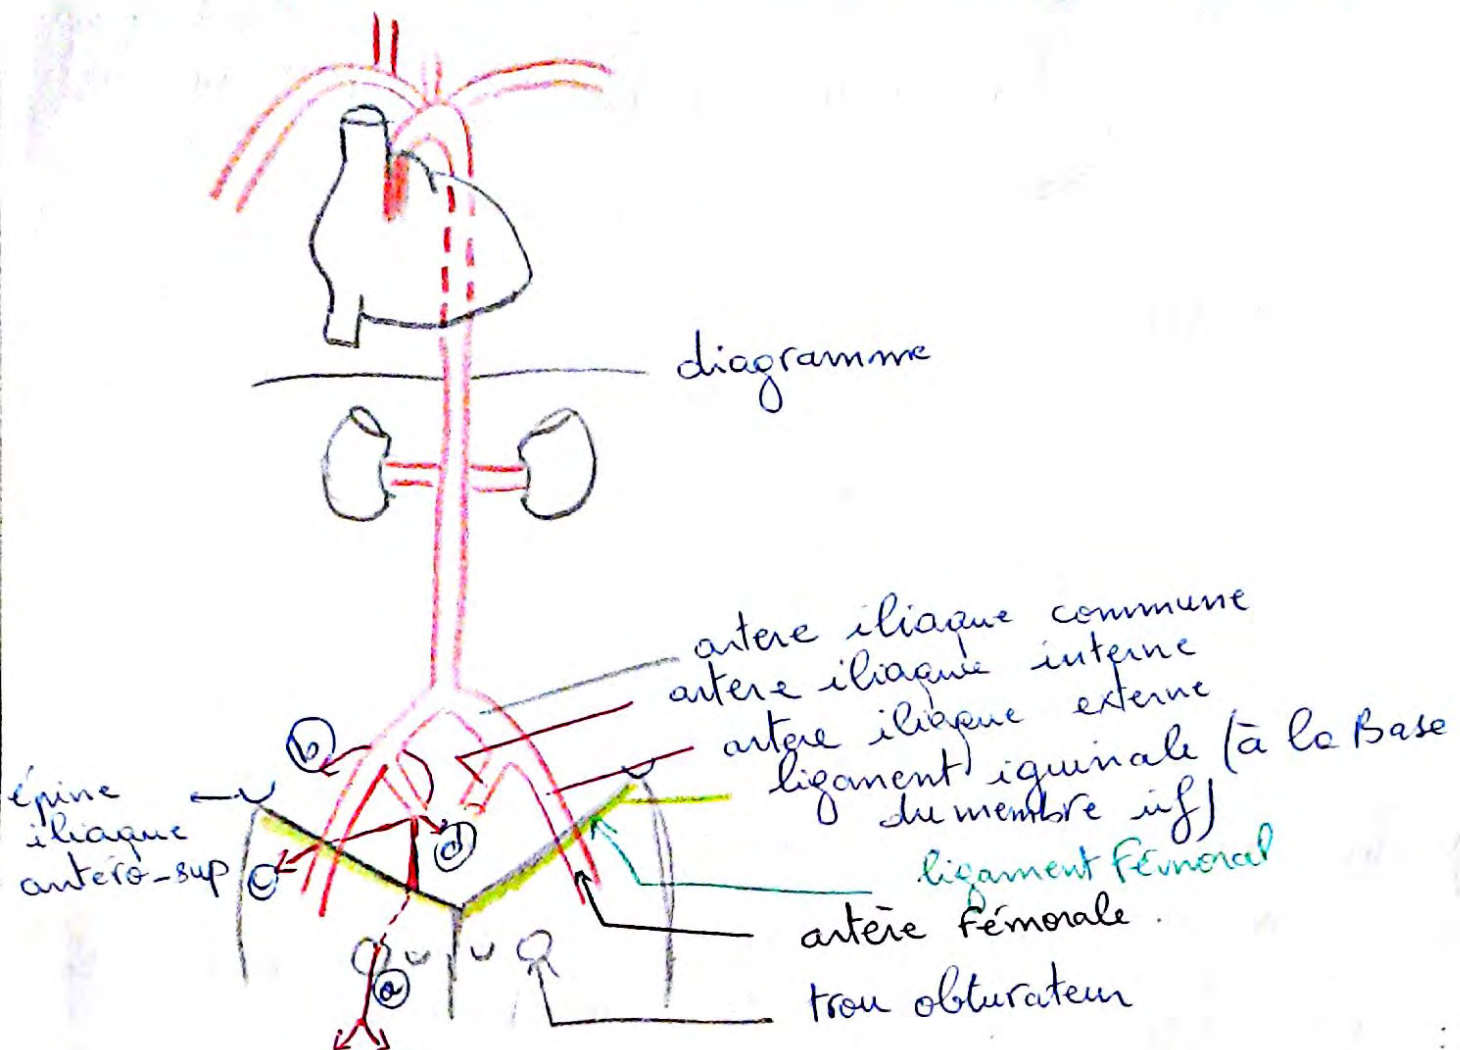 diagramme
artere iliaque commune
artere iliaque interne
artere iliaque externe
ligament iguinale (à la Base
du membre inf)
ligament Fémoral
artère Fémorale.
trou obturateur
épine
iliaque
antéro-sup
b
c
d
a